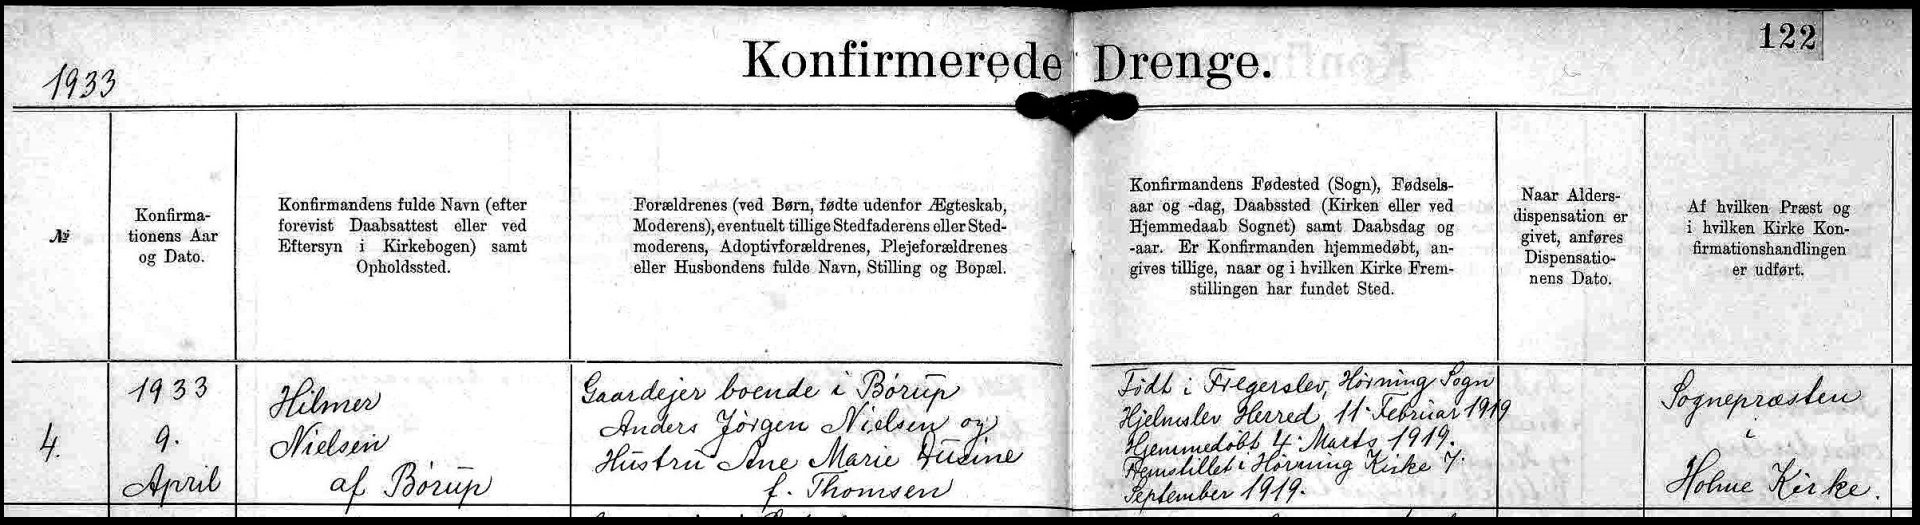 122
Konfirmerede Drenge.
1933
№
Konfirma-
tionens Aar
og Dato.
Konfirmandens fulde Navn (efter
forevist Daabsattest eller ved
Eftersyn i Kirkebogen) samt
Opholdssted.
Forældrenes (ved Børn, fødte udenfor Ægteskab,
Moderens), eventuelt tillige Stedfaderens eller Sted-
moderens, Adoptivforældrenes, Plejeforældrenes
eller Husbondens fulde Navn, Stilling og Bopæl.
Konfirmandens Fødested (Sogn), Fødsels-
aar og -dag, Daabssted (Kirken eller ved
Hjemmedaab Sognet) samt Daabsdag og
-aar. Er Konfirmanden hjemmedøbt, an-
gives tillige, naar og i hvilken Kirke Frem-
stillingen har fundet Sted.
Naar Alders-
dispensation er
givet, anføres
Dispensatio-
nens Dato.
Af hvilken Præst og
i hvilken Kirke Kon-
firmationshandlingen
er udført.
4.
1933
9.
April
Hilmer
Nielsen
af Børup
Gaardejer boende i Børup
Anders Jørgen Nielsen og
Hustru Ane Marie Dusine
f. Thomsen
Født i Fregerslev, Hørning Sogn
Hjelmslev Herred, 11. Februar 1919
Hjemmedøbt 4. Marts 1919.
Fremstillet i Hørning Kirke 7.
September 1919.
Sognepræsten
i
Holme Kirke.